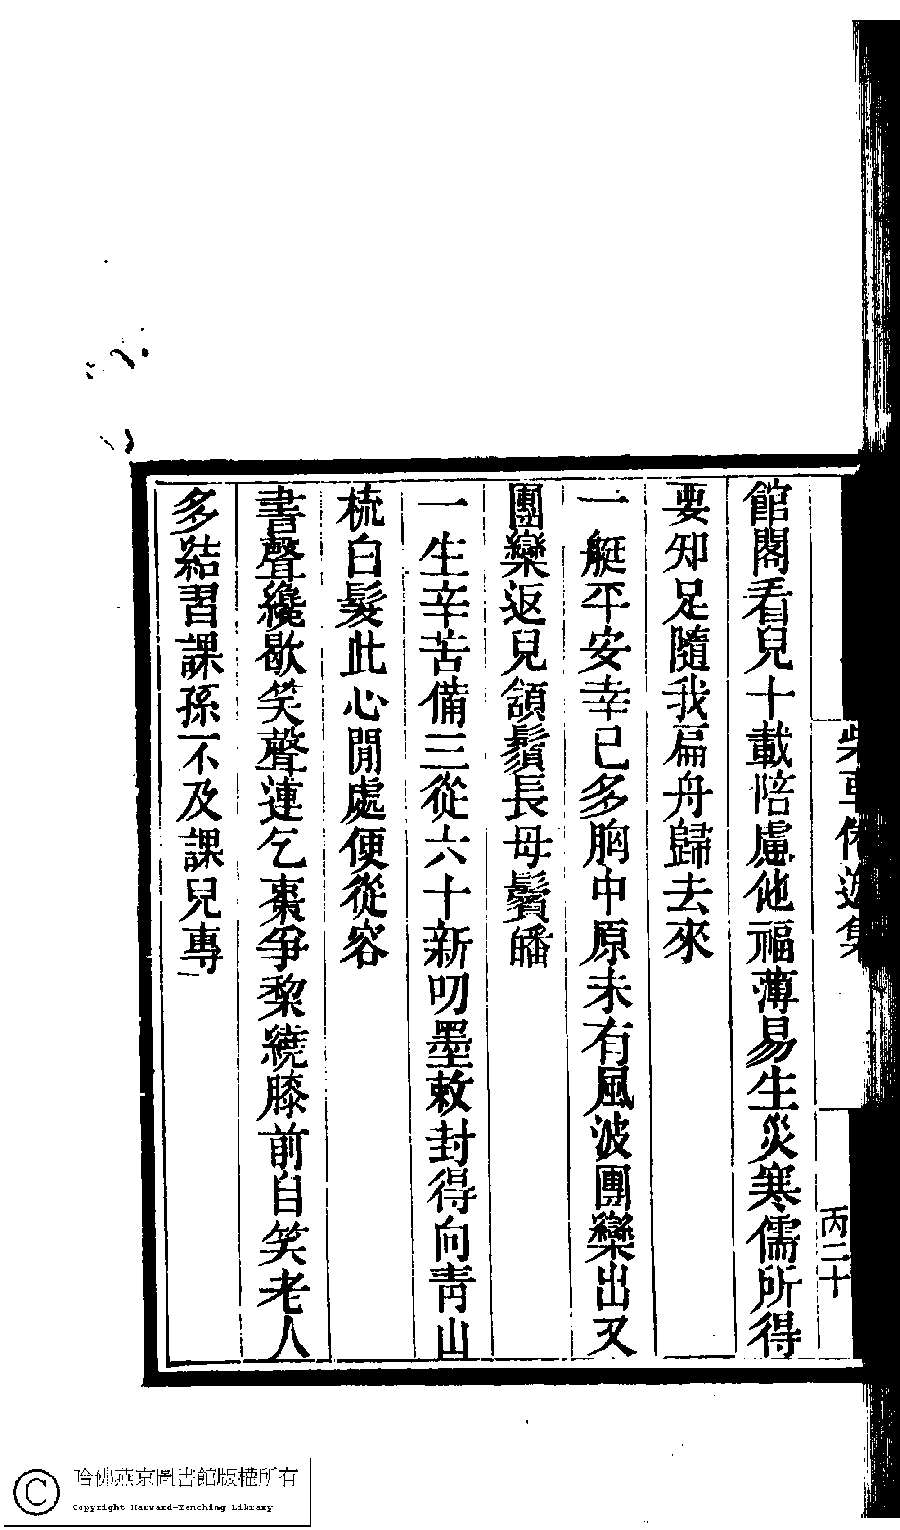 館閣看兒十載陪慮他福薄易生災寒儒所得
要知足隨我扁舟歸去來
一艇平安幸已多胸中原未有風波團欒出又
團欒返兒頷鬚長母鬢皤
一生辛苦備三從六十新叨墨敕封得向青山
梳白髮此心閒處便從容
書聲纔歇笑聲連乞棗爭黎繞膝前自笑老人
多結習課孫不及課兒專
丙二十
哈佛燕京圖書館版權所有
Copyright Harvard-Yenching Library